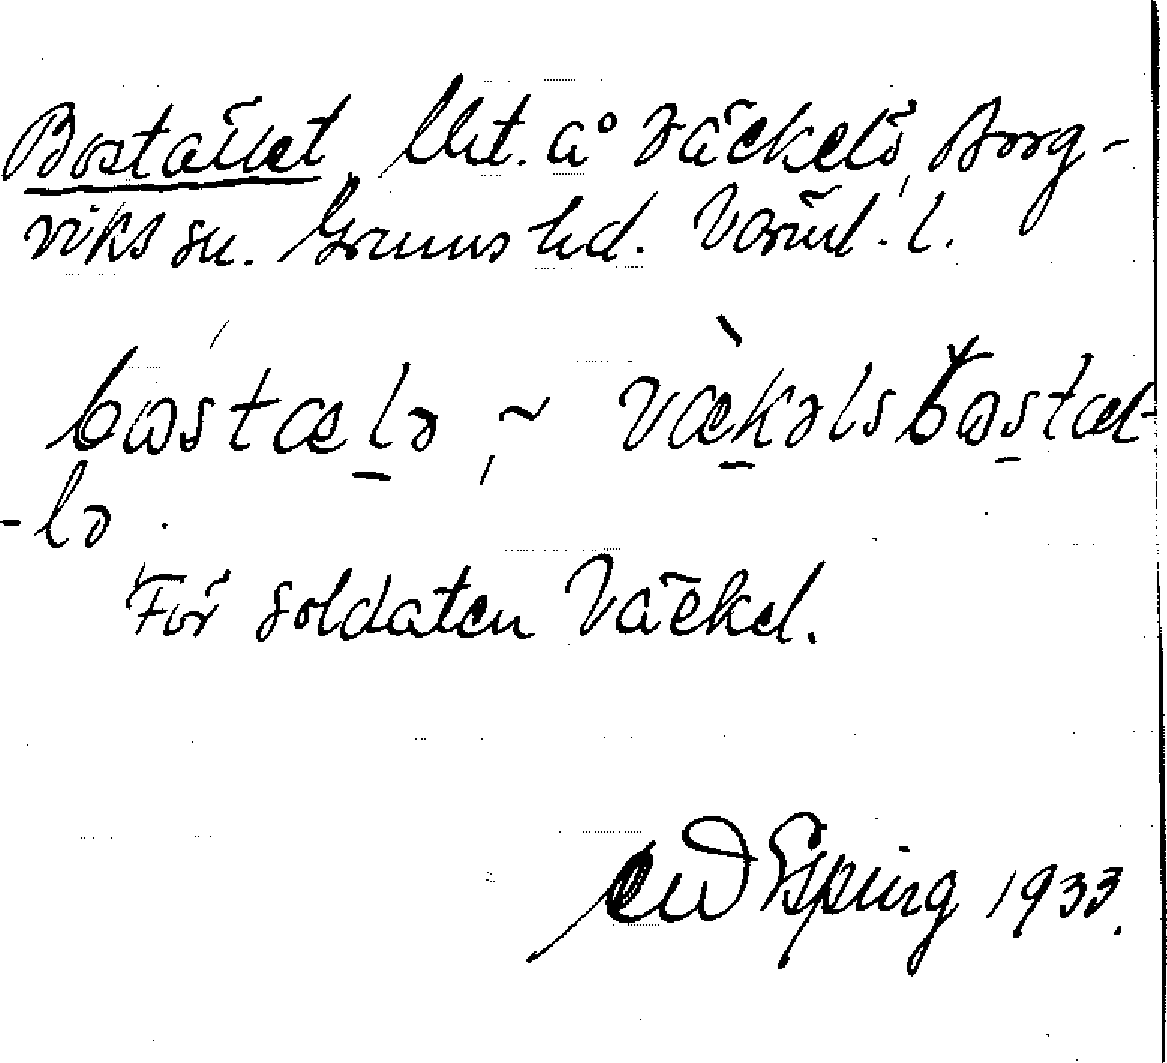 Bostället, Utt. å Väckelö, Borg-
viks sn. Grums hd. Värml. l.
bωstælə, ~ vækəlsbωstæl-
-lə.
För soldaten Väckel.
Esping 1933.